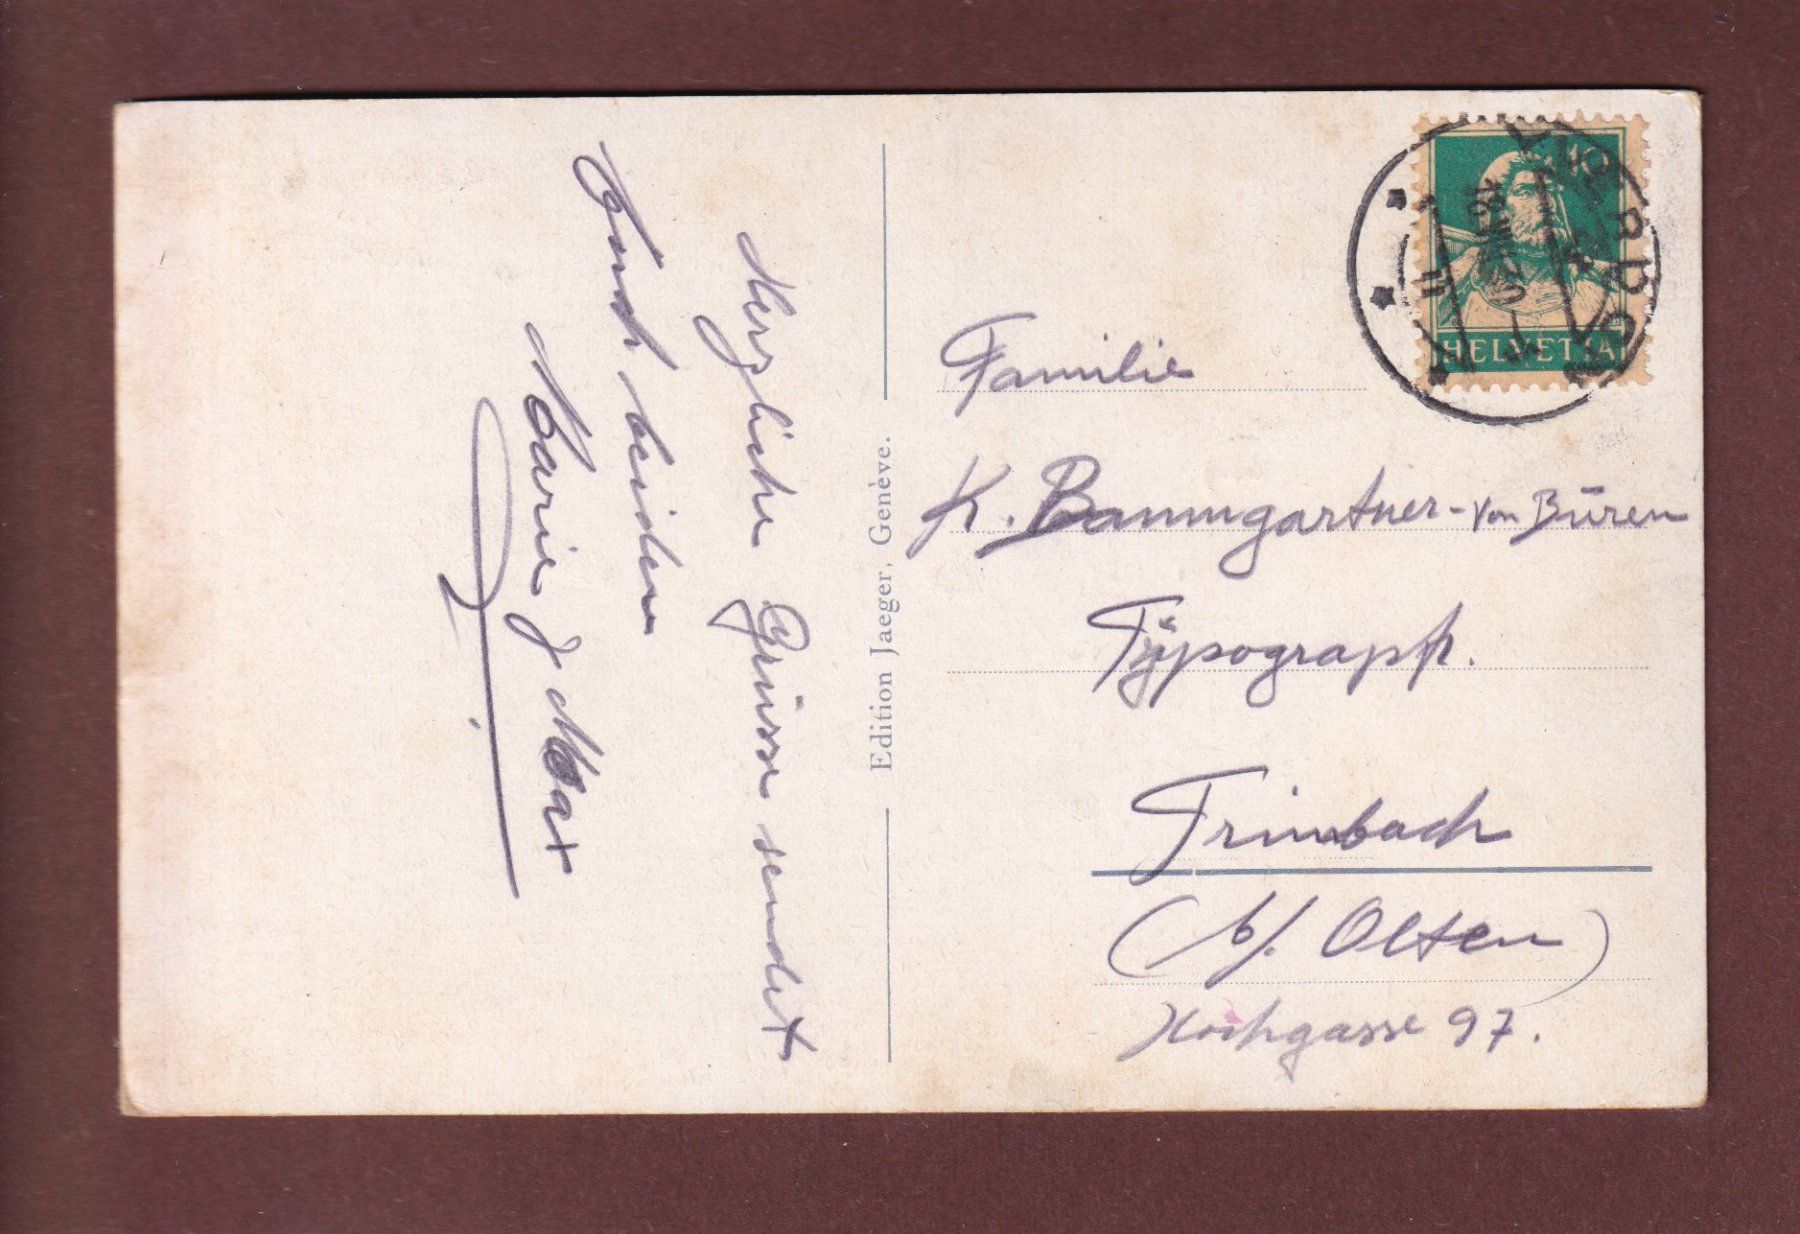 Herzliche Grüsse sendet
Euch beiden
Marie & Max
Edition Jaeger, Genève.
10
HELVETIA
Familie
K. Baumgartner-von Büren
Typograph.
Trimbach
(b/. Olten)
Hochgasse 97.